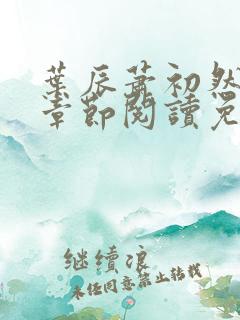 葉辰蕭初然
章節閱讀免
继续浪
未经同意禁止转载